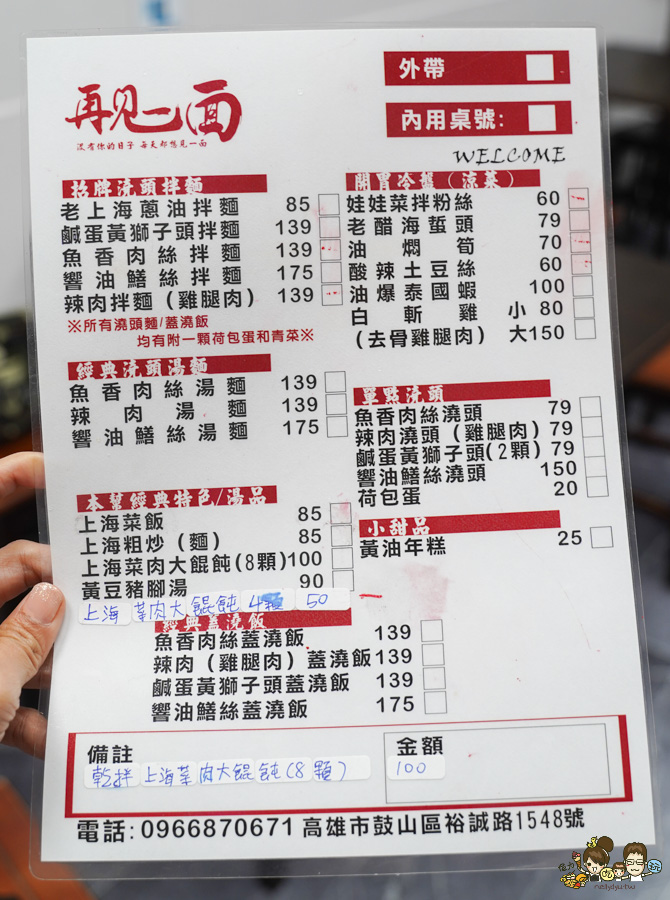 再见一面
沒有你的日子 每天都想見一面
外帶
內用桌號:
WELCOME
招牌澆頭拌麵
老上海蔥油拌麵 85
鹹蛋黃獅子頭拌麵 139
魚香肉絲拌麵 139
響油鱔絲拌麵 175
辣肉拌麵(雞腿肉) 139
※所有澆頭麵/蓋澆飯
均有附一顆荷包蛋和青菜※
經典澆頭湯麵
魚香肉絲湯麵 139
辣肉湯麵 139
響油鱔絲湯麵 175
本幫經典特色/湯品
上海菜飯 85
上海粗炒(麵) 85
上海菜肉大餛飩(8顆) 100
黃豆豬腳湯 90
上海菜肉大餛飩4顆 50
開胃冷盤(涼菜)
娃娃菜拌粉絲 60
老醋海蜇頭 79
油燜筍 70
酸辣土豆絲 60
油爆泰國蝦 100
白斬雞 小 80
(去骨雞腿肉) 大150
單點澆頭
魚香肉絲澆頭 79
辣肉澆頭(雞腿肉) 79
鹹蛋黃獅子頭(2顆) 79
響油鱔絲澆頭 150
荷包蛋 20
小甜品
黃油年糕 25
經典蓋澆飯
魚香肉絲蓋澆飯 139
辣肉(雞腿肉)蓋澆飯 139
鹹蛋黃獅子頭蓋澆飯 139
響油鱔絲蓋澆飯 175
備註
乾拌上海菜肉大餛飩(8顆)
金額
100
電話:0966870671 高雄市鼓山區裕誠路1548號